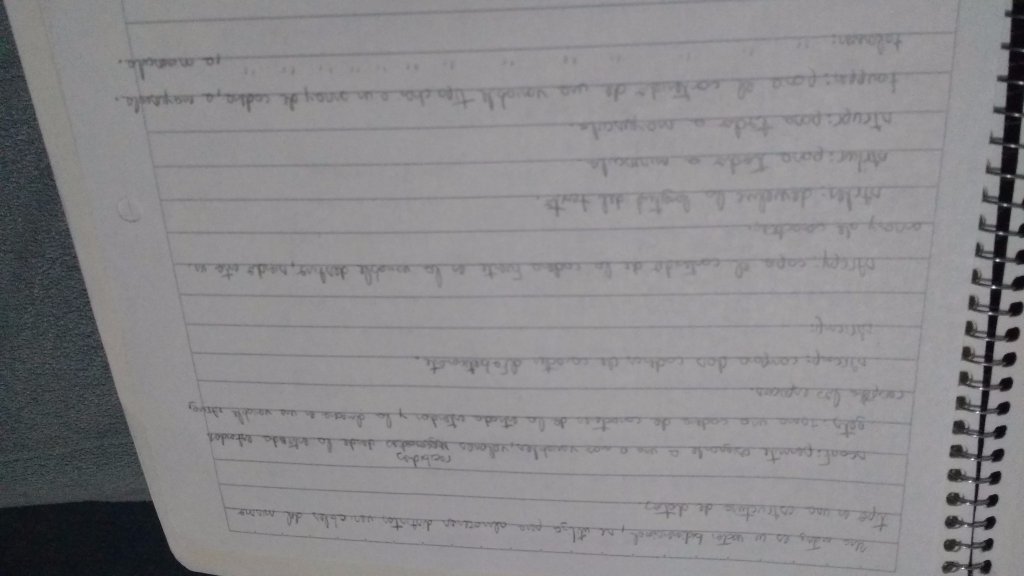 Una matriz es un vector bidimensional, se utiliza para almacenar distintas variables del mismo
tipo en una estructura de datos.
recibidos
scanf: permite asignarle a una o mas variables, valores desde la entrada estandar
gets: toma una cadena de caracteres de la entrada estandar y la almacena en una variable string,
los espacios.
strcmp: compara dos cadenas de caracter alfabeticamente.
stricmp:
strcpy: copia el contenido de la cadena fuente en la variable destino, siendo esta un
array de caracter.
strlen: devuelve la longitud del texto.
strlwr: pasa todo a minuscula
strupr: pasa todo a mayuscula.
toupper: pasa el contenido de una variable tipo char o un array de cadena, a mayuscula.
tolower: " " " " " " " " " " " ,a minuscula.